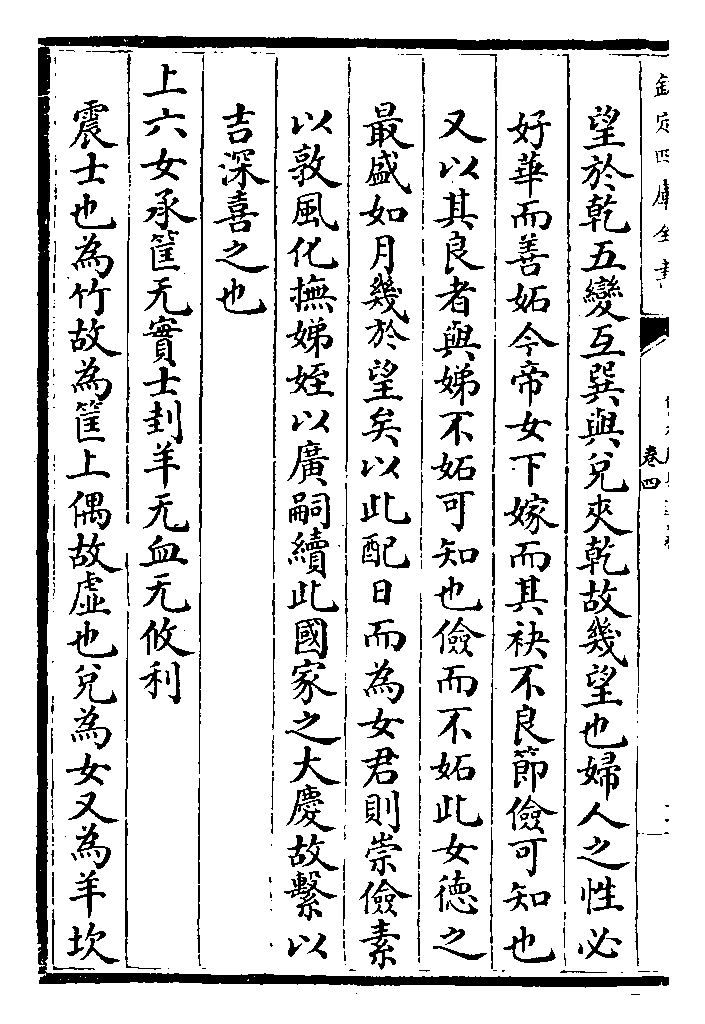 欽定四庫全書
卷四
望於乾五變互巽與兌夾乾故幾望也婦人之性必
好華而善妬今帝女下嫁而其袂不良節儉可知也
又以其良者與娣不妬可知也儉而不妬此女德之
最盛如月幾於望矣以此配日而為女君則崇儉素
以敦風化撫娣姪以廣嗣續此國家之大慶故繫以
吉深喜之也
上六女承筐无實士刲羊无血无攸利
震士也為竹故為筐上偶故虛也兌為女又為羊坎